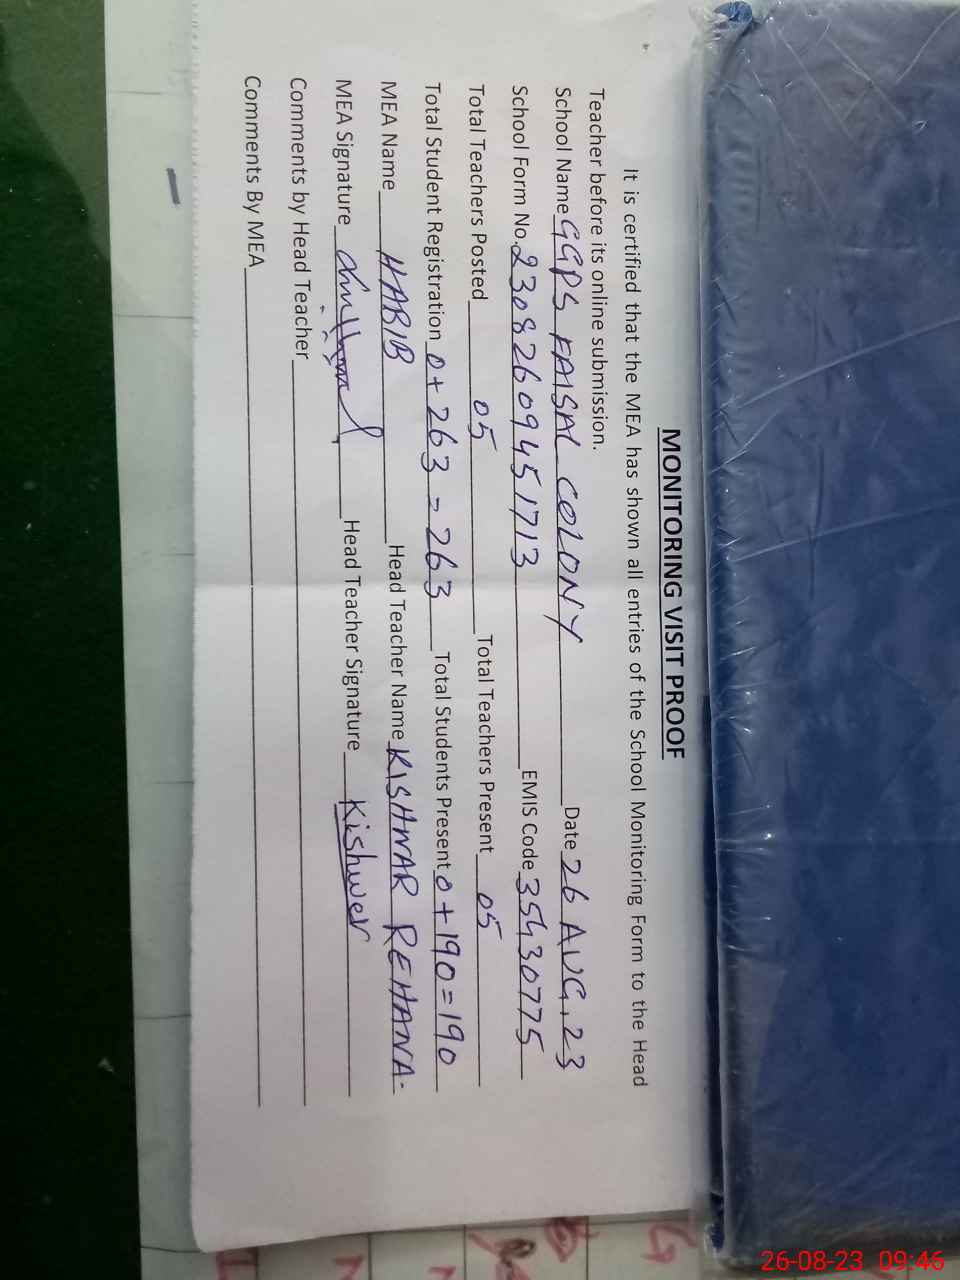 MONITORING VISIT PROOF
It is certified that the MEA has shown all entries of the School Monitoring Form to the Head
Teacher before its online submission.
School Name GGPS FAISAL COLONY Date 26 AUG, 23
School Form No. 23082609451713 EMIS Code 35430775
Total Teachers Posted 05 Total Teachers Present 05
Total Student Registration 0+263=263 Total Students Present 0+190=190
MEA Name HABIB Head Teacher Name KISHWAR REHANA-
MEA Signature Head Teacher Signature Kishwer
Comments by Head Teacher
Comments By MEA
26-08-23 09:46